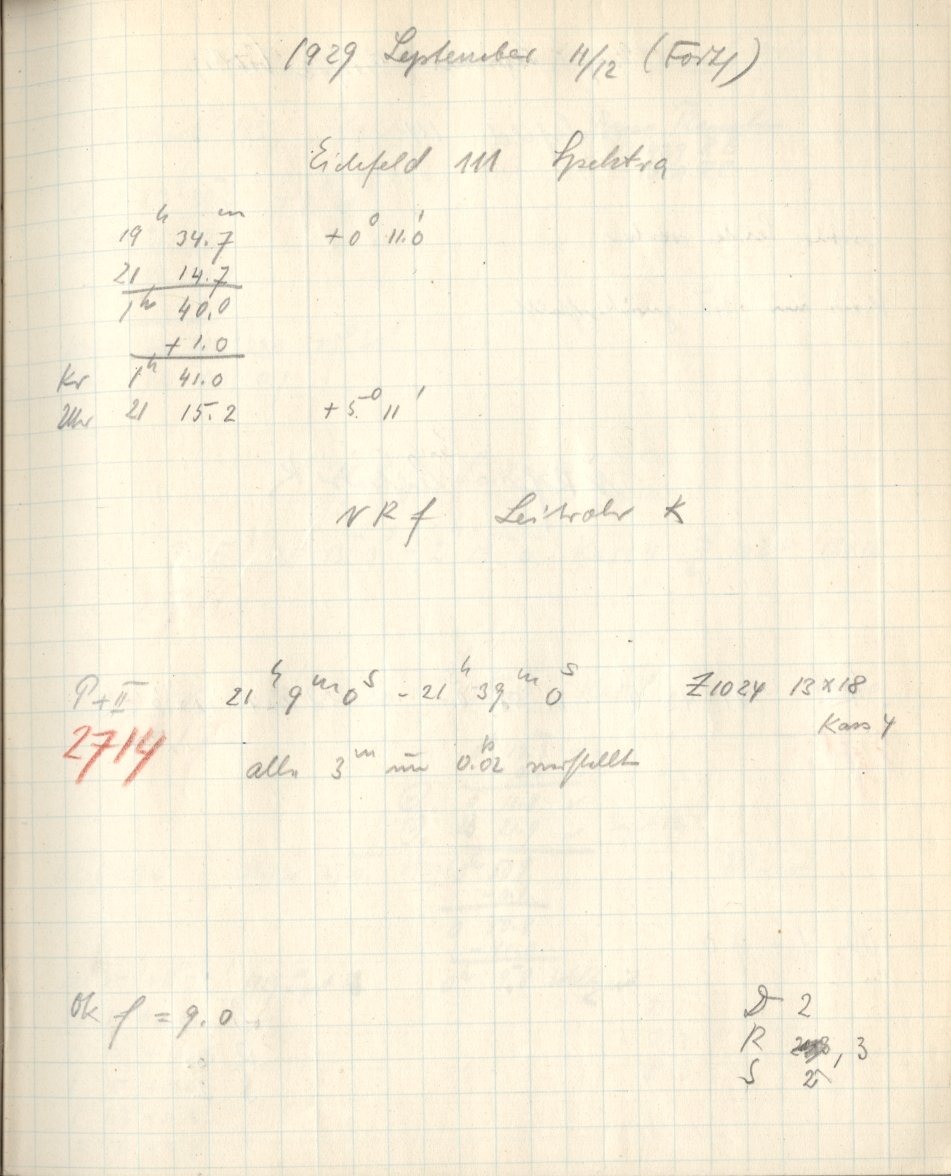 1929 September 11/12 (Forts)
Eichfeld 111 Spektra
19h 34.7m +0° 11.0'
21 14.7
1h 40.0
+1.0
Kr 1h 41.0
Uhr 21 15.2 +5° 11'
N R f Leitrohr K
P+II 21h 9m 0s - 21h 39m 0s Z1024 13x18
Kass 4
2714
alle 3m um 0.02 verstellt
Ok f = 9.0
D 2
R , 3
S 2